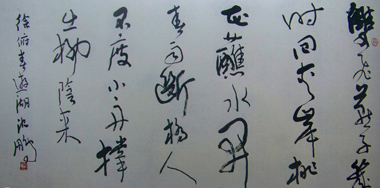 雙飛燕子幾
时回夹岸桃
花蘸水開
春雨斷橋人
不度小舟撑
出柳陰来
徐俯春遊湖沈鹏